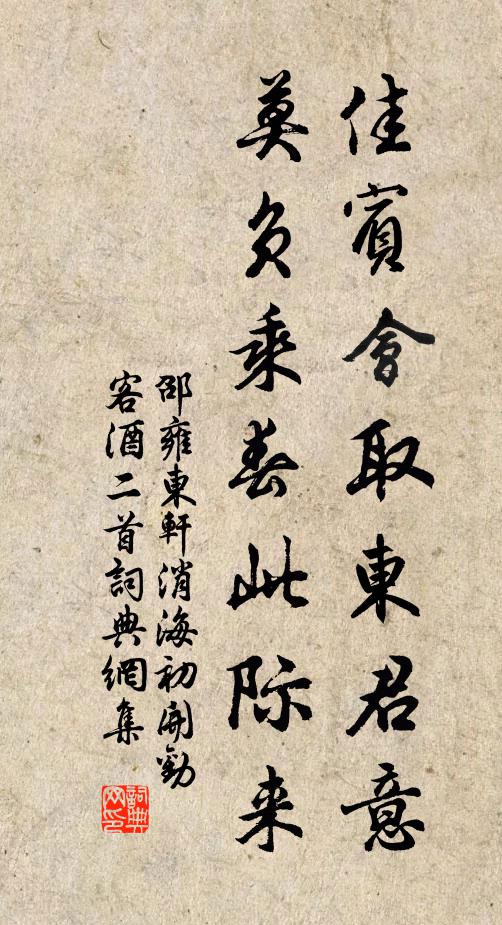 佳賓會取東君意
莫负乘春此际来
邵雍東軒消海初開勸
客酒二首詞典網集
詞典
网印